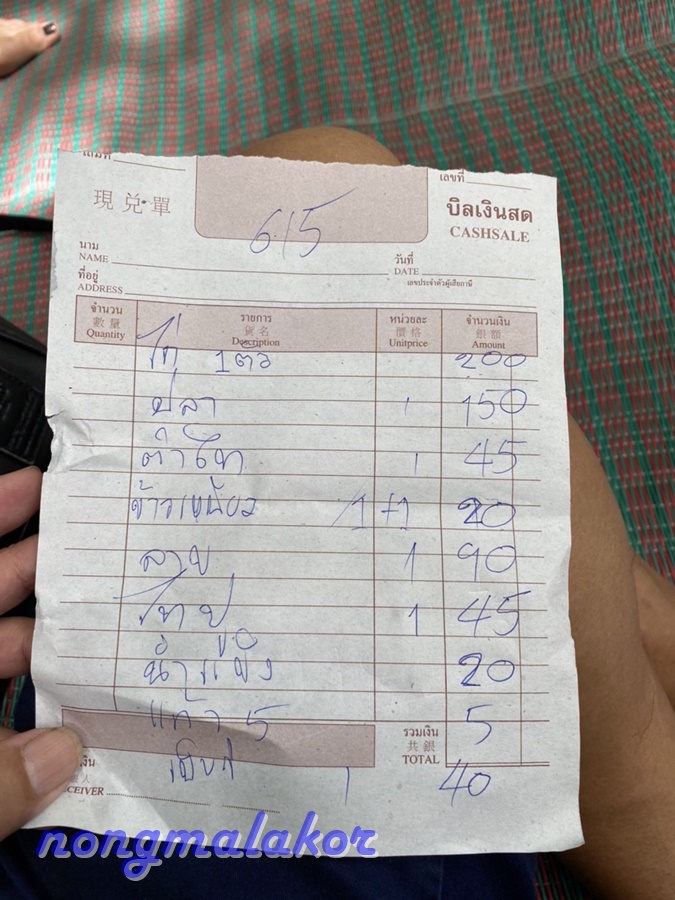 เลขที่
現兌單
615
บิลเงินสด
CASHSALE
นาม
NAME
วันที่
DATE
ที่อยู่
ADDRESS
เลขประจำตัวผู้เสียภาษี
จำนวน รายการ หน่วยละ จำนวนเงิน
數量 貨名 價格 銀額
Quantity Description Unitprice Amount
ไก่ 1ตัว 200
ปลา 1 150
ตำไท 1 45
ข้าวเหนียว 1+1 20
ลาบ 1 90
1 45
น้ำแข็ง 20
แก้ว 5 5
รวมเงิน
共銀
TOTAL
1 40
CEIVER
nongmalakor